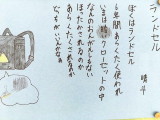 ランドセル
晴斗
ぼくはランドセル
6年間あらくたく使われ
いまは暗いクローゼットの中
なんのおんがえしもない
ほったかされるのか
あらくたくされるのか
どっちがいいんかなあ